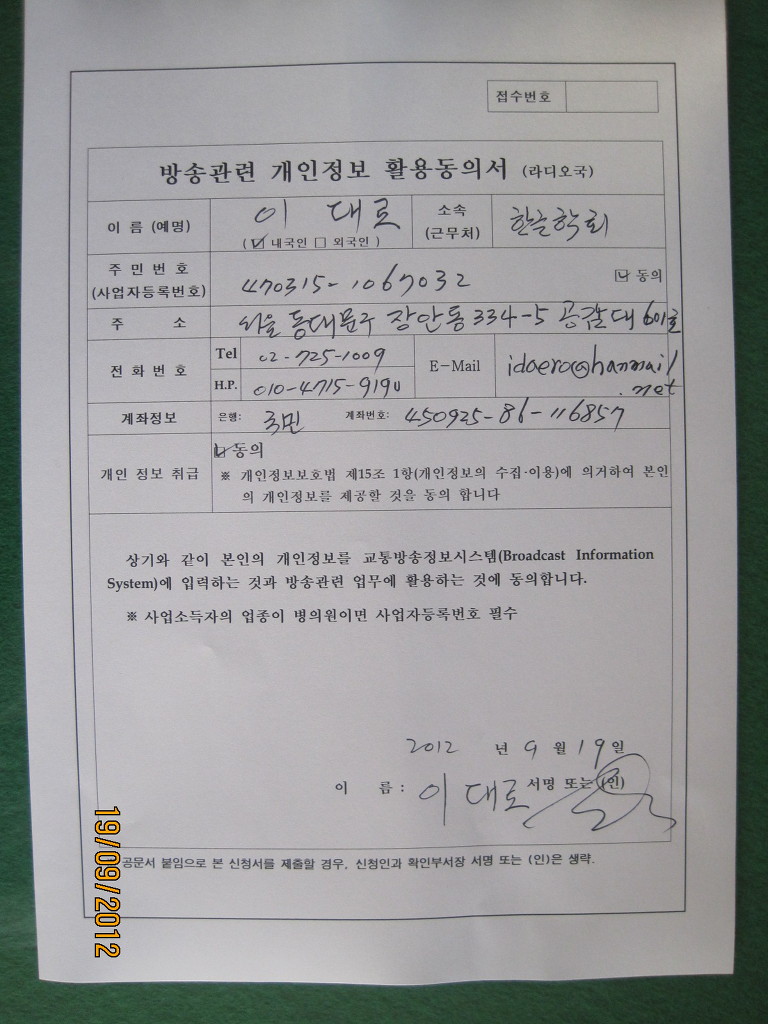 접수번호
방송관련 개인정보 활용동의서 (라디오국)
이 름 (예명) 이 대로 소속 (근무처) 한글학회
( ☑ 내국인 □ 외국인 )
주 민 번 호
(사업자등록번호) 470315-1067032 ☑ 동의
주 소 서울 동대문구 장안동 334-5 601호
전 화 번 호 Tel 02-725-1009 E-Mail idaero@hanmail.net
H.P. 010-4715-9190
계좌정보 은행: 국민 계좌번호: 450925-86-116857
개인 정보 취급 ☑ 동의
※ 개인정보보호법 제15조 1항(개인정보의 수집·이용)에 의거하여 본인
의 개인정보를 제공할 것을 동의 합니다
상기와 같이 본인의 개인정보를 교통방송정보시스템(Broadcast Information
System)에 입력하는 것과 방송관련 업무에 활용하는 것에 동의합니다.
※ 사업소득자의 업종이 병의원이면 사업자등록번호 필수
2012 년 9 월 19 일
이 름 : 이 대로 서명 또는 (인)
공문서 붙임으로 본 신청서를 제출할 경우, 신청인과 확인부서장 서명 또는 (인)은 생략.
19/09/2012